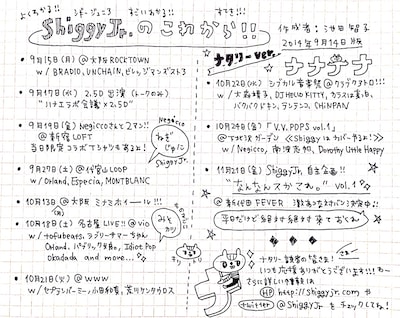 よくわかる!! シギージュニア すごいわかる!! すてき!!!
Shiggy Jr. のこれから!!
作成者:池田智子
2014年9月14日版
ナタリーver.
9月15日(月) @大阪 ROCKTOWN
w/ BRADIO, UNCHAIN, ビレッジマンズストア
9月17日(水) 2.5D 出演 (トークのみ)
"ハナエラボ会議×2.5D"
9月19日(金) Negiccoさんと2マン!!
@新宿 LOFT
当日限定コラボTシャツもあるよ!
Negicco
ねぎ
じゅに
Shiggy Jr.
9月27日(土) @代官山LOOP
w/ ORLAND, Especia, MONTBLANC
10月13日(祝) @大阪 ミナミホイール!!!
10月18日(土) 名古屋LIVE!! @vio
w/ tofubeats, ラブリーサマーちゃん
ORLAND, パブリック娘。, Idiot Pop
okadada and more...
みそ
カツ
10月21日(火) @ WWW
w/ セプテンバーミー, 小田和奏, 荒川ケンタウロス
10月22日(水) シブカル音楽祭 @クアトロ!!!
w/ 大森靖子, DJ HELLO KITTY, カラスは真っ白,
バクバクドキン, テンテンコ, CHiNPAN
10月24日(金) 「V.V. POPS vol.1」
@下北沢ガーデン
w/ Negicco, 南波志帆, Dorothy Little Happy
11月21日(金) Shiggy Jr. 自主企画!!
"なんなんスかこれ。" vol.1
@新代田FEVER
平日だけど絶対絶対来ておくれ
ナ
ナタリー読者の皆さま!
いつも応援ありがとうございます!!
さらに詳しい情報は
HP http://shiggyjr.com や
twitter @ShiggyJr を チェックしてね!